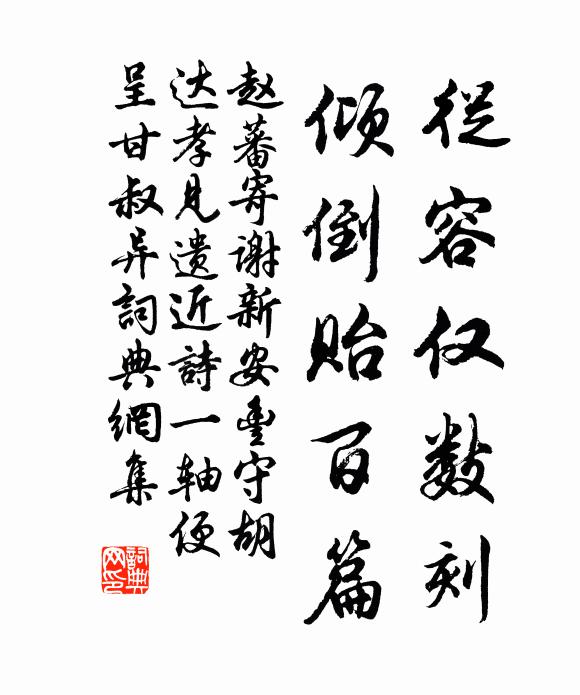 從容仅數刻
倾倒贻百篇
赵蕃寄謝新安豐守胡
达孝見遗近詩一轴便
呈甘叔异詞典網集
詞典网印